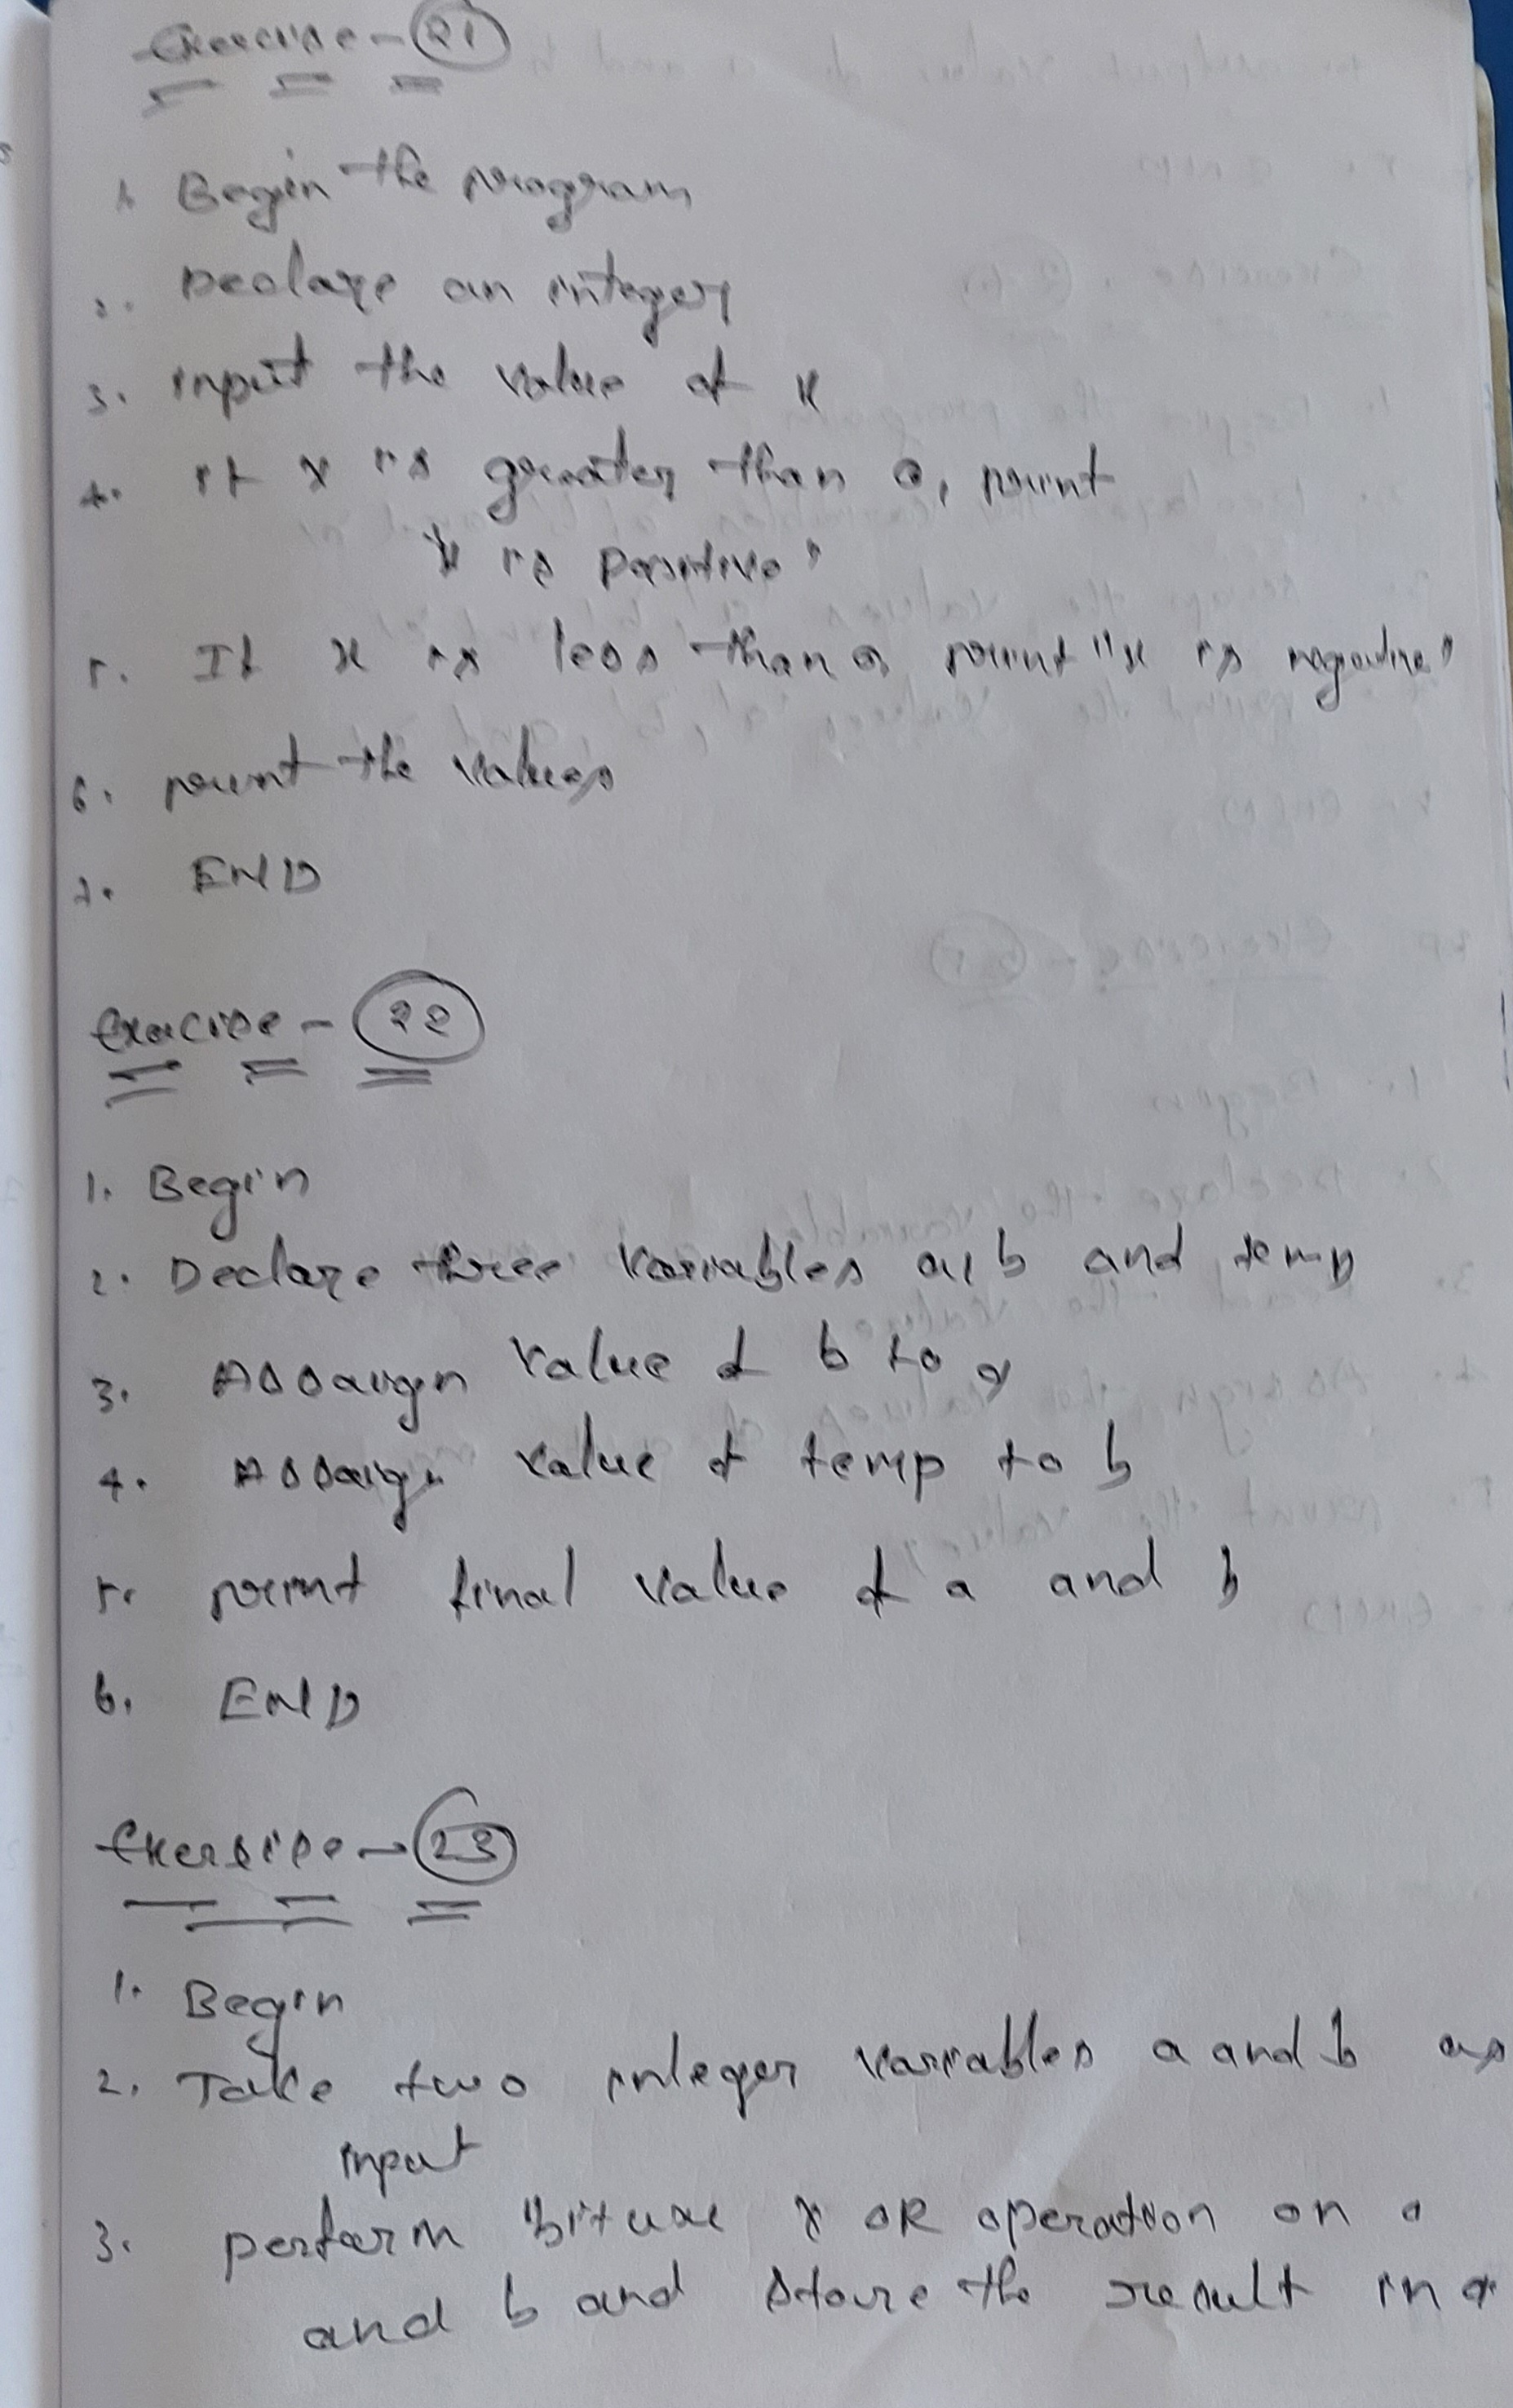 Exercise - 21
1. Begin the program
2. Declare an integer
3. input the value of x
4. if x is greater than 0, print
"x is positive"
5. If x is less than 0, print "x is negative"
6. print the values
7. END
Exercise - 22
1. Begin
2. Declare three variables a, b and temp
3. Assaign value of b to a
4. Assaign value of temp to b
5. print final value of a and b
6. END
Exersise - 23
1. Begin
2. Take two integer variables a and b as
input
3. perform Bitwise XOR operation on a
and b and store the result in a